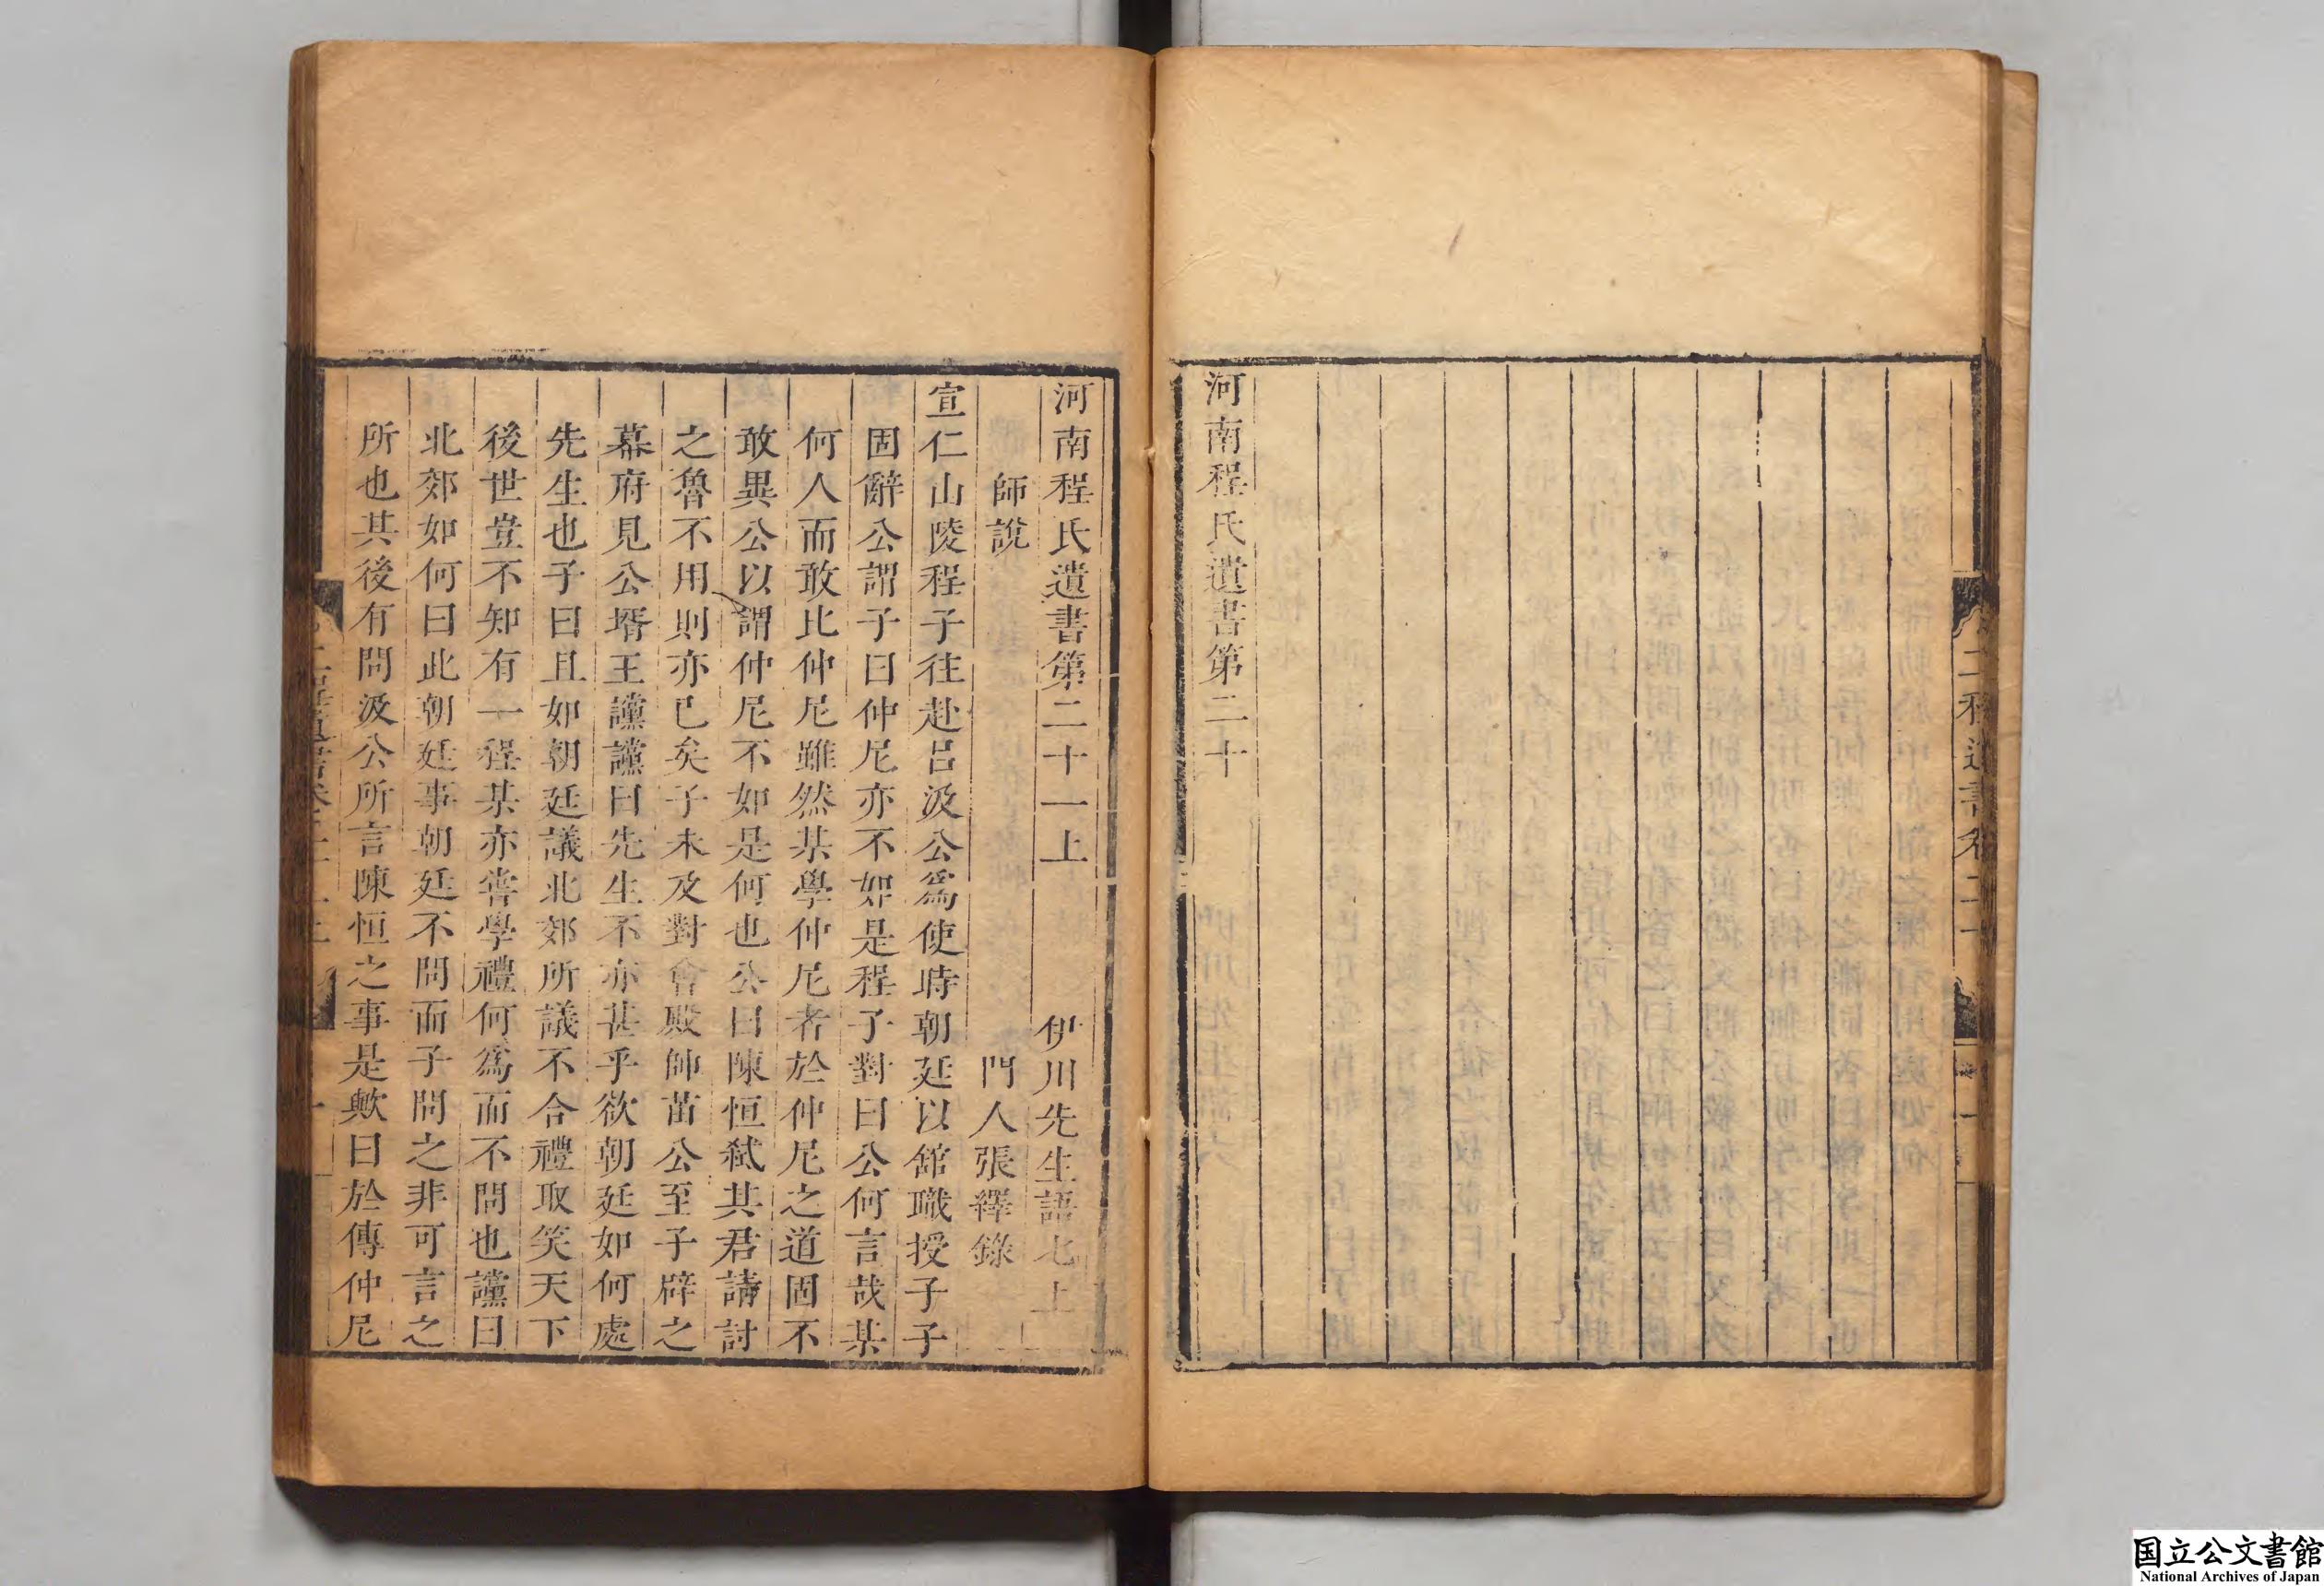 二程遺書卷二十
一
河南程氏遺書第二十
河南程氏遺書第二十一上　伊川先生語七上
師說　門人張繹錄
宣仁山陵程子往赴呂汲公爲使時朝廷以舘職授子子
固辭公謂子曰仲尼亦不如是程子對曰公何言哉某
何人而敢比仲尼雖然某學仲尼者於仲尼之道固不
敢異公以謂仲尼不如是何也公曰陳恒弑其君請討
之魯不用則亦已矣子未及對會殿帥苗公至子辟之
幕府見公壻王讜讜曰先生不亦甚乎欲朝廷如何處
先生也子曰且如朝廷議北郊所議不合禮取笑天下
後世豈不知有一程某亦嘗學禮何爲而不問也讜曰
北郊如何曰此朝廷事朝廷不問而子問之非可言之
所也其後有問汲公所言陳恒之事是歟曰於傳仲尼
国立公文書館
National Archives of Japan